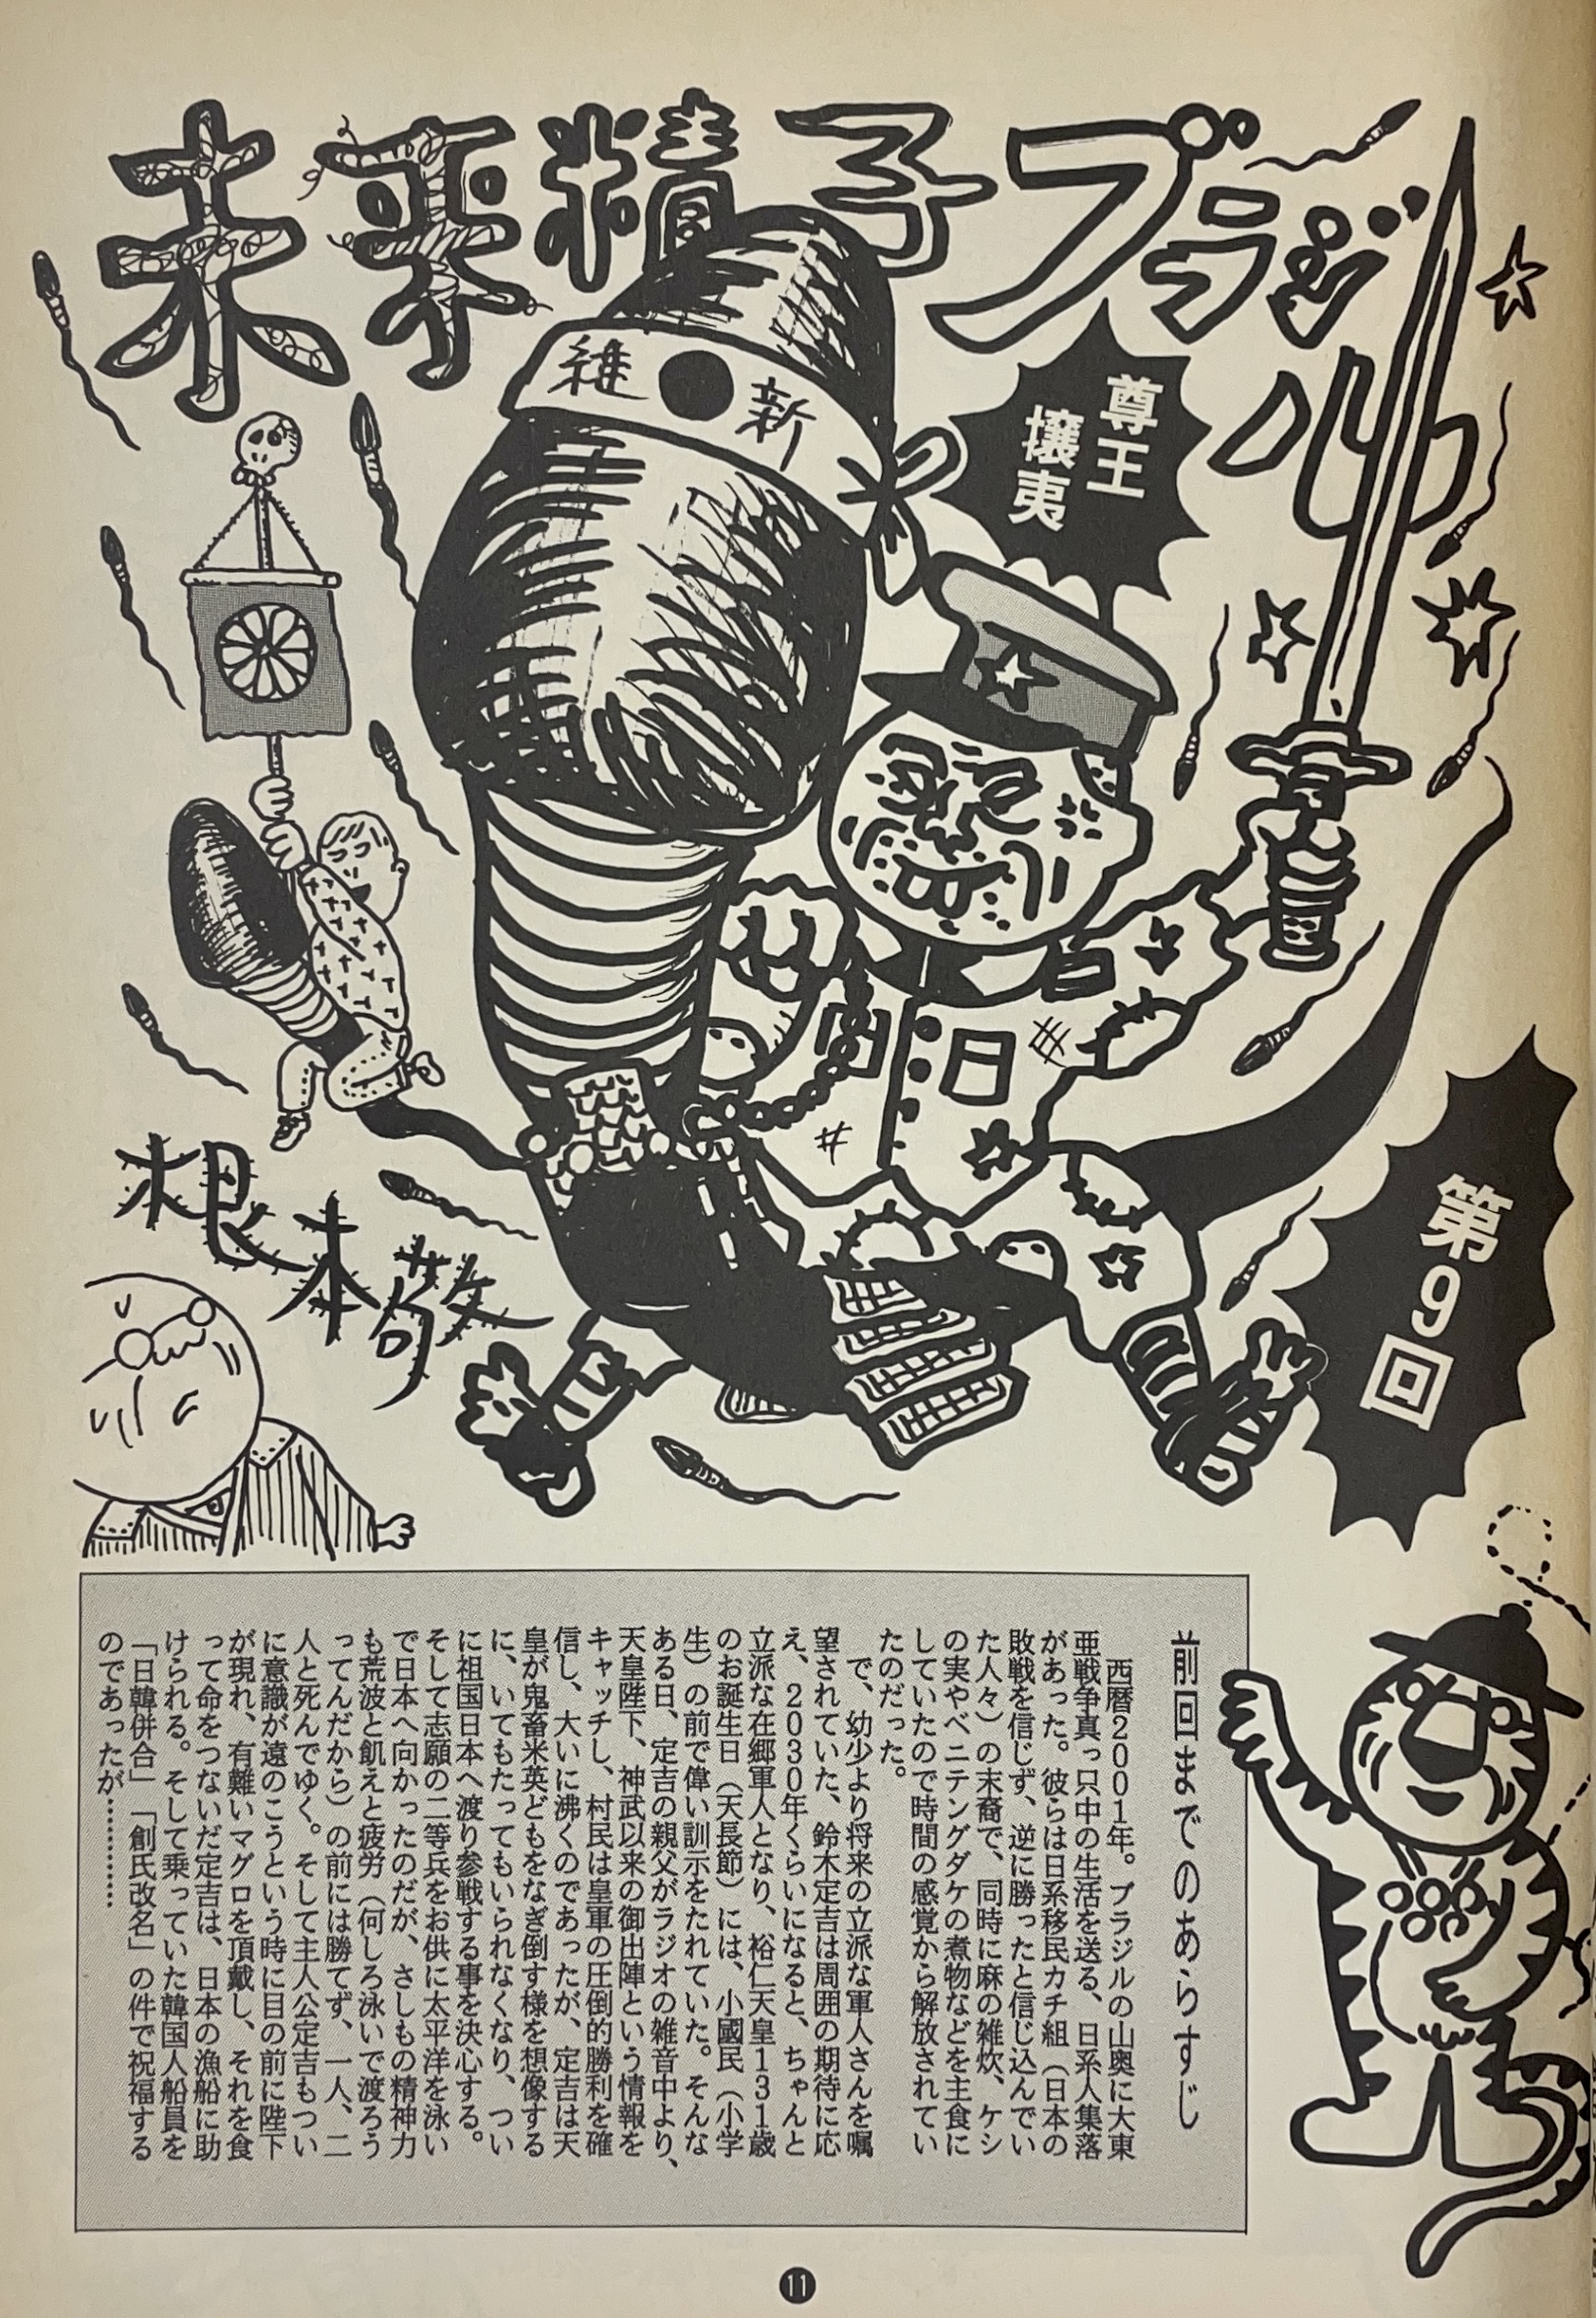 未来精子ブラジル
維●新
尊王
攘夷
日
根本敬
第9回
前回までのあらすじ
西暦2001年。ブラジルの山奥に大東
亜戦争真っ只中の生活を送る、日系人集落
があった。彼らは日系移民カチ組（日本の
敗戦を信じず、逆に勝ったと信じ込んでい
た人々）の末裔で、同時に麻の雑炊、ケシ
の実やベニテングダケの煮物などを主食に
していたので時間の感覚から解放されてい
たのだった。
で、幼少より将来の立派な軍人さんを嘱
望されていた、鈴木定吉は周囲の期待に応
え、2030年くらいになると、ちゃんと
立派な在郷軍人となり、裕仁天皇131歳
のお誕生日（天長節）には、小國民（小学
生）の前で偉い訓示をたれていた。そんな
ある日、定吉の親父がラジオの雑音中より、
天皇陛下、神武以来の御出陣という情報を
キャッチし、村民は皇軍の圧倒的勝利を確
信し、大いに沸くのであったが、定吉は天
皇が鬼畜米英どもをなぎ倒す様を想像する
に、いてもたってもいられなくなり、つい
に祖国日本へ渡り参戦する事を決心する。
そして志願の二等兵をお供に太平洋を泳い
で日本へ向かったのだが、さしもの精神力
も荒波と飢えと疲労（何しろ泳いで渡ろう
ってんだから）の前には勝てず、一人、二
人と死んでゆく。そして主人公定吉もつい
に意識が遠のこうという時に目の前に陛下
が現れ、有難いマグロを頂戴し、それを食
って命をつないだ定吉は、日本の漁船に助
けられる。そして乗っていた韓国人船員を
「日韓併合」「創氏改名」の件で祝福する
のであったが…………
11